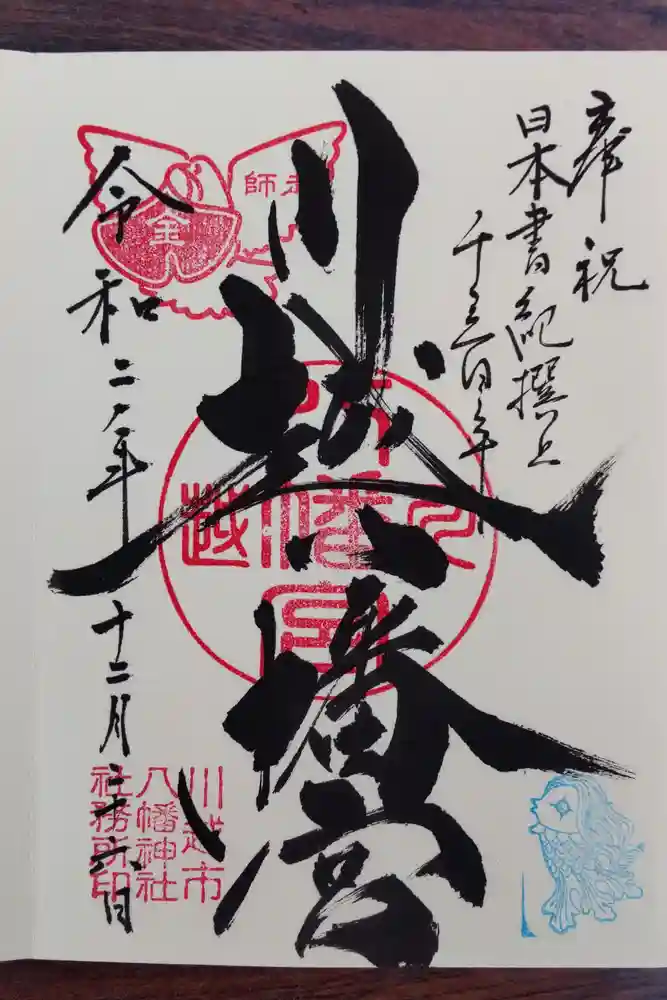 奉祝
日本書紀撰上
千三百年
川越八幡宮
令和二年
十二月二十六日
川越市
八幡神社
社務所印